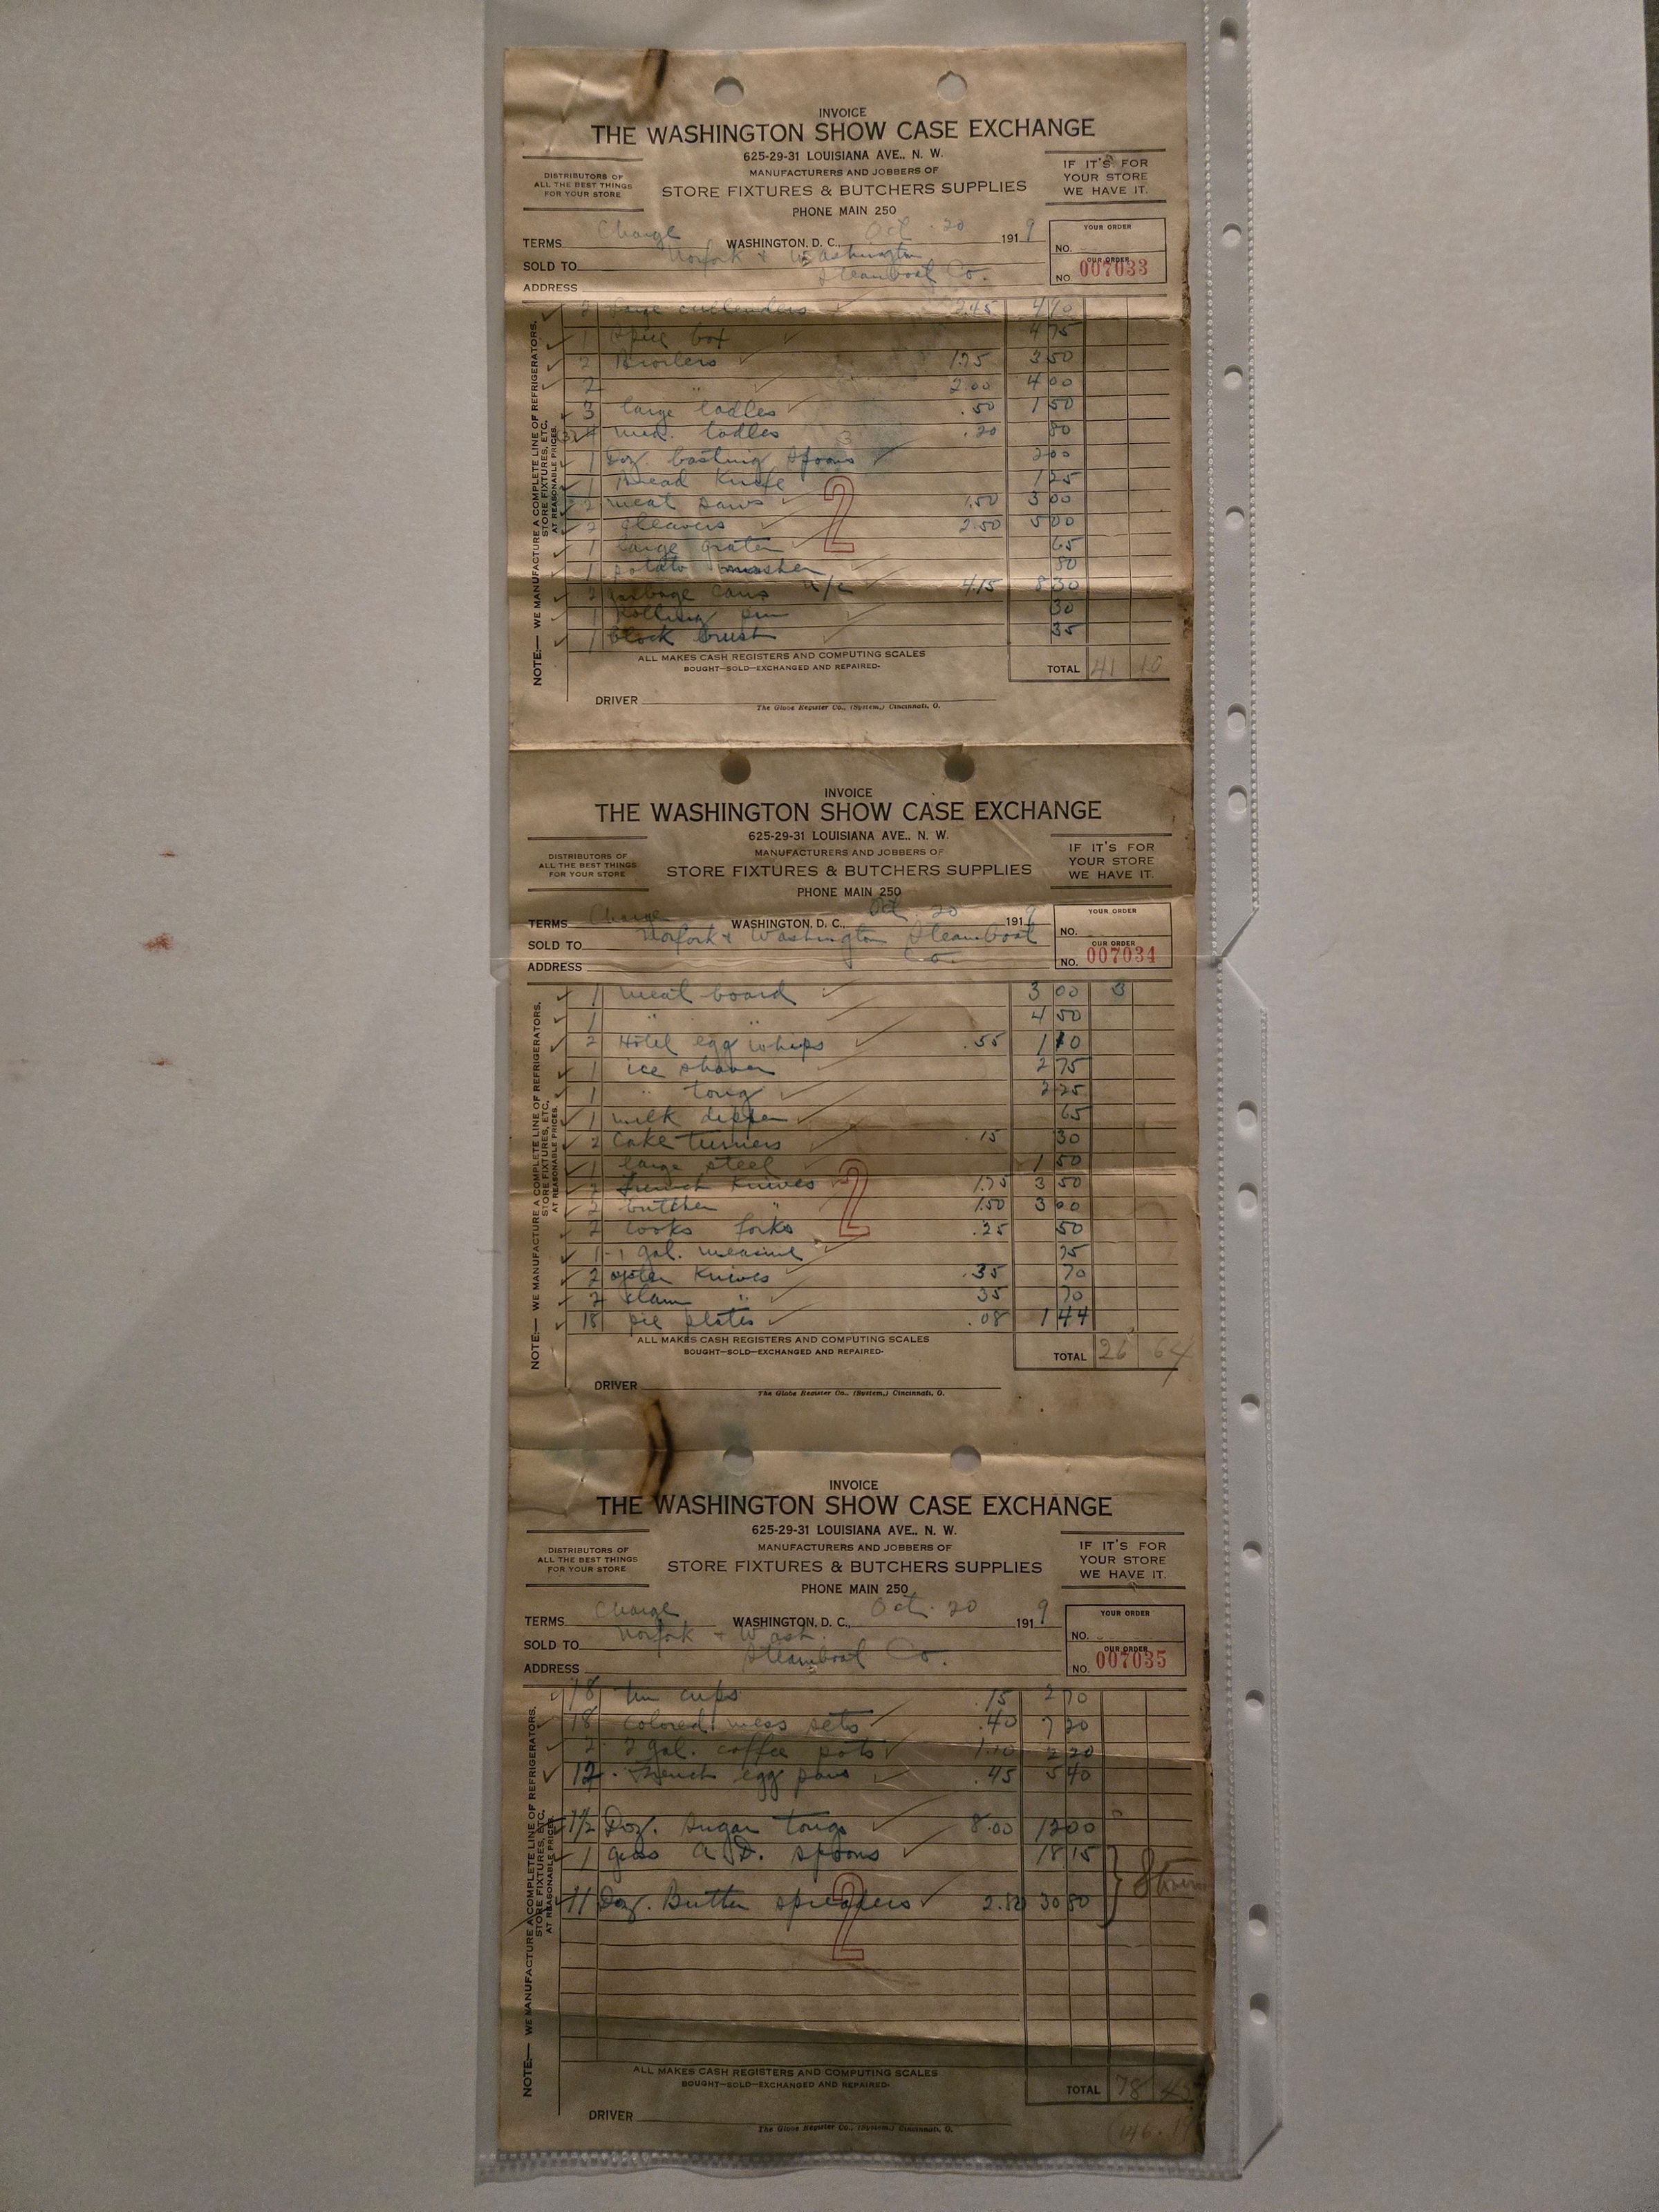 INVOICE
THE WASHINGTON SHOW CASE EXCHANGE
625-29-31 LOUISIANA AVE., N. W.
MANUFACTURERS AND JOBBERS OF
STORE FIXTURES & BUTCHERS SUPPLIES
PHONE MAIN 250
DISTRIBUTORS OF
ALL THE BEST THINGS
FOR YOUR STORE
IF IT'S FOR
YOUR STORE
WE HAVE IT.
TERMS Charge WASHINGTON, D. C., Oct. 20 1919
SOLD TO Norfork & Washington
Steamboat Co.
ADDRESS
YOUR ORDER
NO.
OUR ORDER
NO. 007033
NOTE:— WE MANUFACTURE A COMPLETE LINE OF REFRIGERATORS,
STORE FIXTURES, ETC,
AT REASONABLE PRICES.
2 large 2.45
1 Spice box 4 75
2 Broilers 1.75 3 50
2 " 2.00 4 00
3 large ladles .50 1 50
4 med. ladles .20 80
1 Doz. basting spoons 2 00
1 Bread Knife 1 25
2 meat saws 1.50 3 00
2 cleavers 2.50 5 00
1 large grater 65
1 potato masher
2 garbage cans w/c 4.15 8 30
1 Rolling pin 30
1 block brush 35
ALL MAKES CASH REGISTERS AND COMPUTING SCALES
BOUGHT—SOLD—EXCHANGED AND REPAIRED-
TOTAL 41 10
DRIVER
The Globe Register Co., (System,) Cincinnati, O.
2
INVOICE
THE WASHINGTON SHOW CASE EXCHANGE
625-29-31 LOUISIANA AVE., N. W.
MANUFACTURERS AND JOBBERS OF
STORE FIXTURES & BUTCHERS SUPPLIES
PHONE MAIN 250
DISTRIBUTORS OF
ALL THE BEST THINGS
FOR YOUR STORE
IF IT'S FOR
YOUR STORE
WE HAVE IT.
TERMS Charge WASHINGTON, D. C., Oct. 20 1919
SOLD TO Norfork & Washington Steamboat
Co.
ADDRESS
YOUR ORDER
NO.
OUR ORDER
NO. 007034
NOTE:— WE MANUFACTURE A COMPLETE LINE OF REFRIGERATORS,
STORE FIXTURES, ETC,
AT REASONABLE PRICES.
1 meat board 3 00 3
1 " " 4 50
2 Hotel egg whips .55 1 10
1 ice shaver 2 75
1 " tong 2 25
1 milk dipper 65
2 Cake turners .15 30
1 large steel 1 50
2 French Knives 1.75 3 50
2 butcher " 1.50 3 00
2 cooks forks .25 50
1 - 1 gal. measure 75
2 oyster Knives .35 70
2 clam " 35 70
18 pie plates .08 1 44
ALL MAKES CASH REGISTERS AND COMPUTING SCALES
BOUGHT—SOLD—EXCHANGED AND REPAIRED-
TOTAL 26 64
DRIVER
The Globe Register Co., (System,) Cincinnati, O.
2
INVOICE
THE WASHINGTON SHOW CASE EXCHANGE
625-29-31 LOUISIANA AVE., N. W.
MANUFACTURERS AND JOBBERS OF
STORE FIXTURES & BUTCHERS SUPPLIES
PHONE MAIN 250
DISTRIBUTORS OF
ALL THE BEST THINGS
FOR YOUR STORE
IF IT'S FOR
YOUR STORE
WE HAVE IT.
TERMS Charge WASHINGTON, D. C., Oct. 20 1919
SOLD TO Norfork & Wash.
Steamboat Co.
ADDRESS
YOUR ORDER
NO.
OUR ORDER
NO. 007035
NOTE:— WE MANUFACTURE A COMPLETE LINE OF REFRIGERATORS,
STORE FIXTURES, ETC,
AT REASONABLE PRICES.
18 tin cups .15 2 70
18 colored mess sets .40 7 20
2 2 gal. coffee pots 1.10 2 20
12 French egg pans .45 5 40
1 1/2 Doz. Sugar tongs 8.00 12 00
1 gross A. D. spoons 18 15
11 Doz. Butter spreaders 2.80 30 80
ALL MAKES CASH REGISTERS AND COMPUTING SCALES
BOUGHT—SOLD—EXCHANGED AND REPAIRED-
TOTAL 78 45
DRIVER
The Globe Register Co., (System,) Cincinnati, O.
2